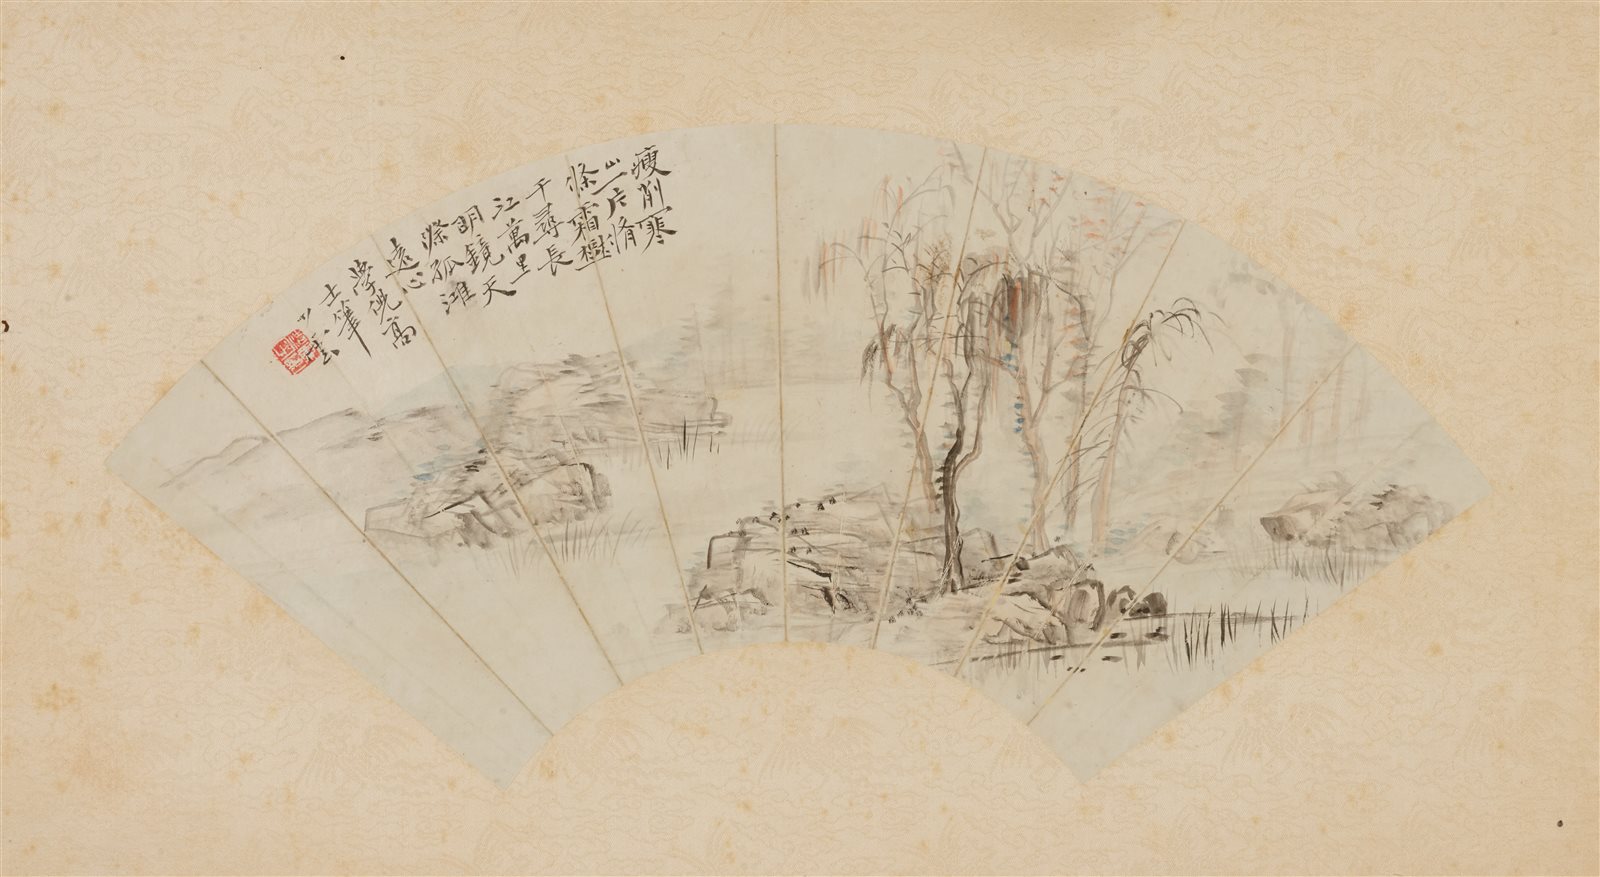 瘦削寒
山一片脩
條霜樹
千尋長
江萬里
明鏡天
際孤灘
遠心
學倪高
士筆